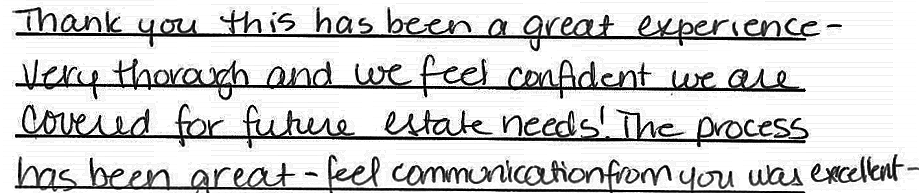 Thank you this has been a great experience-
Very thorough and we feel confident we are
covered for future estate needs! The process
has been great - feel communication from you was excellent-